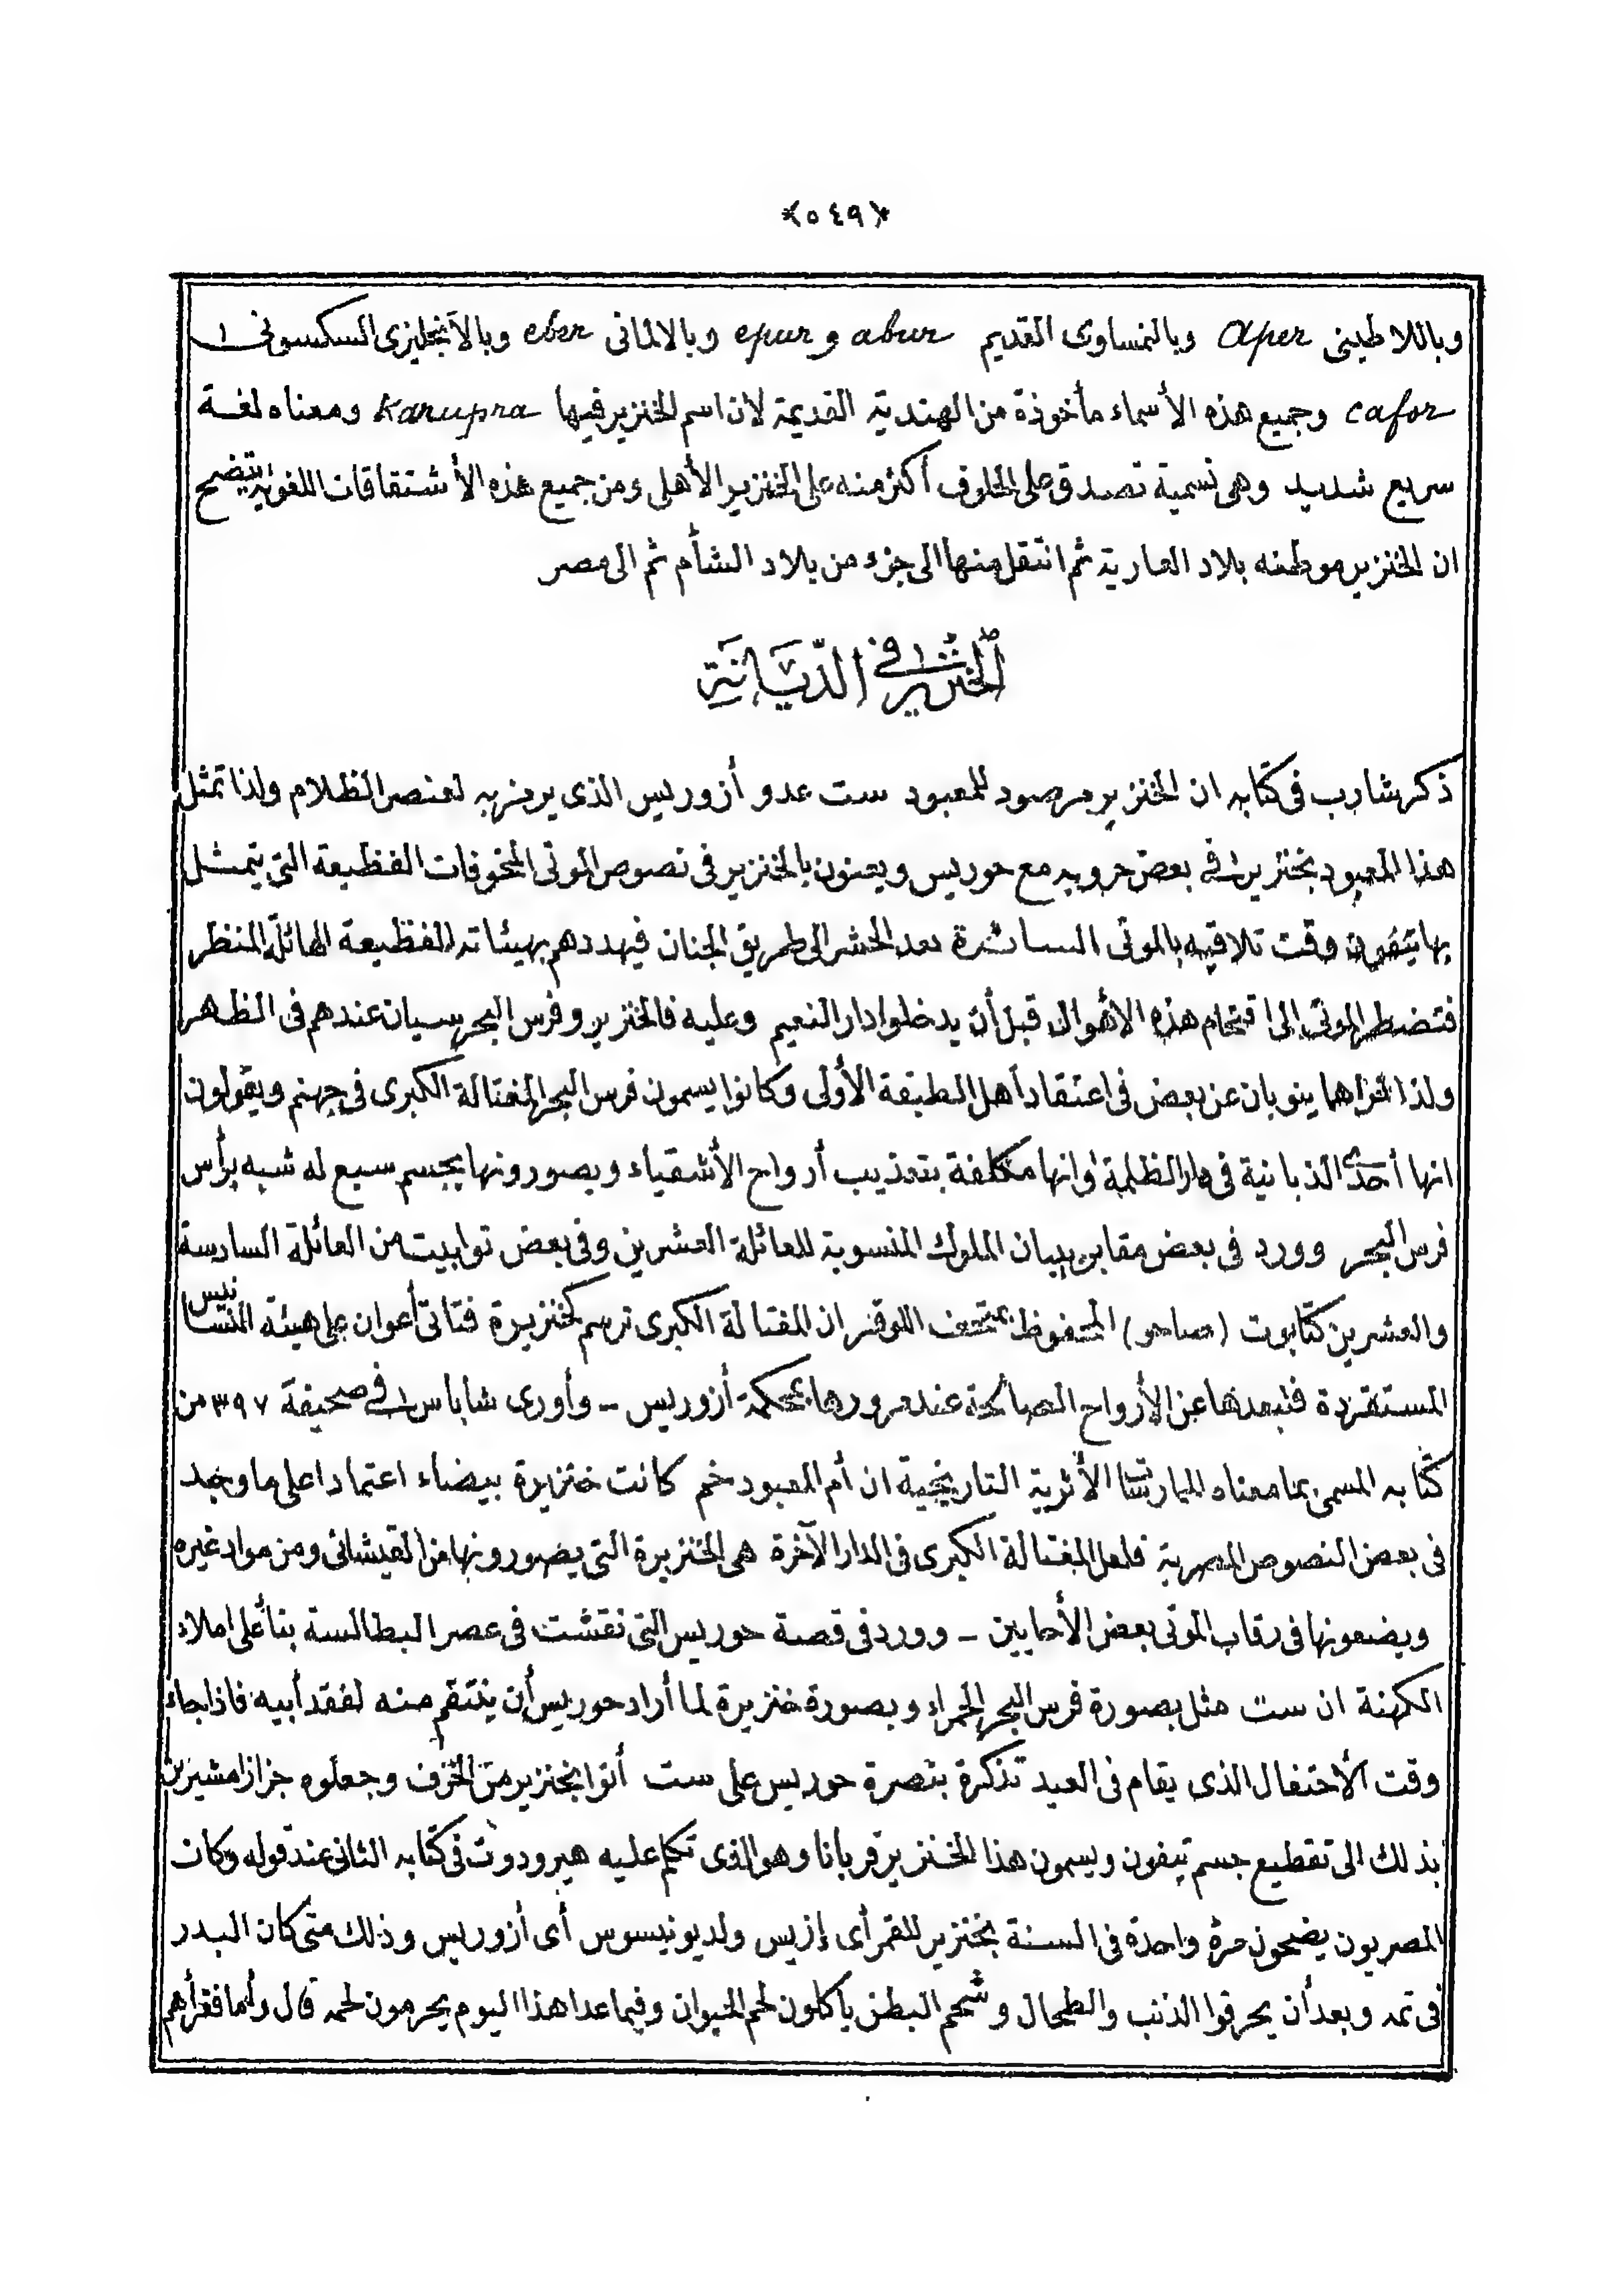 ﴿٥٤٩﴾
وباللاطينى aper وبالنمساوى القديم abur و epur وبالالمانى eber وبالانجليزى السكسونى
cafor وجميع هذه الأسماء مأخوذة من الهندية القديمة لان اسم الخنزير فيها Karupra ومعناه لغة
سريع شديد وهى تسمية تصدق على الحلوف أكثر منه على الخنزير الأهلى ومن جميع هذه الأشتقاقات اللغوية يتضح
ان الخنزير موطنه بلاد العارية ثم انتقل منها الى جزء من بلاد الشأم ثم الى مصر
الخنزير فى الديانة
ذكر شارب فى كتابه ان الخنزير مرصود للمعبود ست عدو أزوريس الذى يرمز به لعنصر الظلام ولذا تمثل
هذا المعبود بخنزير فى بعض حروبه مع حوريس ويعنون بالخنزير فى نصوص الموتى المخوفات الفظيعة التى يتمثل
بها تيفون وقت تلاقيه بالموتى السائرة بعد الحشر الى طريق الجنان فيهددهم بهيئاته الفظيعة الهائلة المنظر
فتضطر الموتى الى اقتحام هذه الأهوال قبل أن يدخلوا دار النعيم وعليه فالخنزير وفرس البحر سيان عندهم فى الظهر
ولذا تراهما ينوبان عن بعض فى اعتقاد أهل الطبقة الأولى وكانوا يسمون فرس البحر المغتالة الكبرى فى جهنم ويقولون
انها أحدى الذبانية فى دار الظلمة وانها مكلفة بتعذيب أرواح الأشقياء ويصورونها بجسم سبع له شبه برأس
فرس البحر وورد فى بعض مقابر بيبان الملوك المنسوبة للعائلة العشرين وفى بعض توابيت من العائلة السادسة
والعشرين كتابوت (صاحو) المحفوظ بمتحف اللوفر ان المغتالة الكبرى ترسم كخنزيرة فتاتى أعوان على هيئة النسانيس
المستقردة فتبعدها عن الأرواح الصالحة عند مرورها بمحكمة أزوريس - وأورى شاباس فى صحيفة ٣٩٧ من
كتابه المسمى بما معناه الأثرية التاريخية ان أم المعبود خم كانت خنزيرة بيضاء اعتمادا على ما وجد
فى بعض النصوص المصرية فلعل المغتالة الكبرى فى الدار الآخرة هى الخنزيرة التى يصورونها من القيشانى ومن مواد غيره
ويضعونها فى رقاب الموتى بعض الأحايين - وورد فى قصة حوريس التى نقشت فى عصر البطالسة بناً على املاء
الكهنة ان ست مثل بصورة فرس البحر الحمراء وبصورة خنزيرة لما أراد حوريس أن ينتقم منه لفقد أبيه فاذا جاء
وقت الأحتفال الذى يقام فى العيد تذكرة بنصرة حوريس على ست أتوا بخنزير من الخزف وجعلوه جزازا مشيرين
بذلك الى تقطيع جسم تيفون ويسمون هذا الخنزير قربانا وهو الذى تكلم عليه هيرودوت فى كتابه الثانى عند قوله وكان
المصريون يضحون مرة واحدة فى السنة بخنزير للقمر أى إزيس ولديونيسوس أى أزوريس وذلك متى كان البدر
فى تمه وبعد أن يحرقوا الذنب والطحال وشحم البطن يأكلون لحم الحيوان وفيما عدا هذا اليوم يحرمون لحمه قال وأما فقرأهم